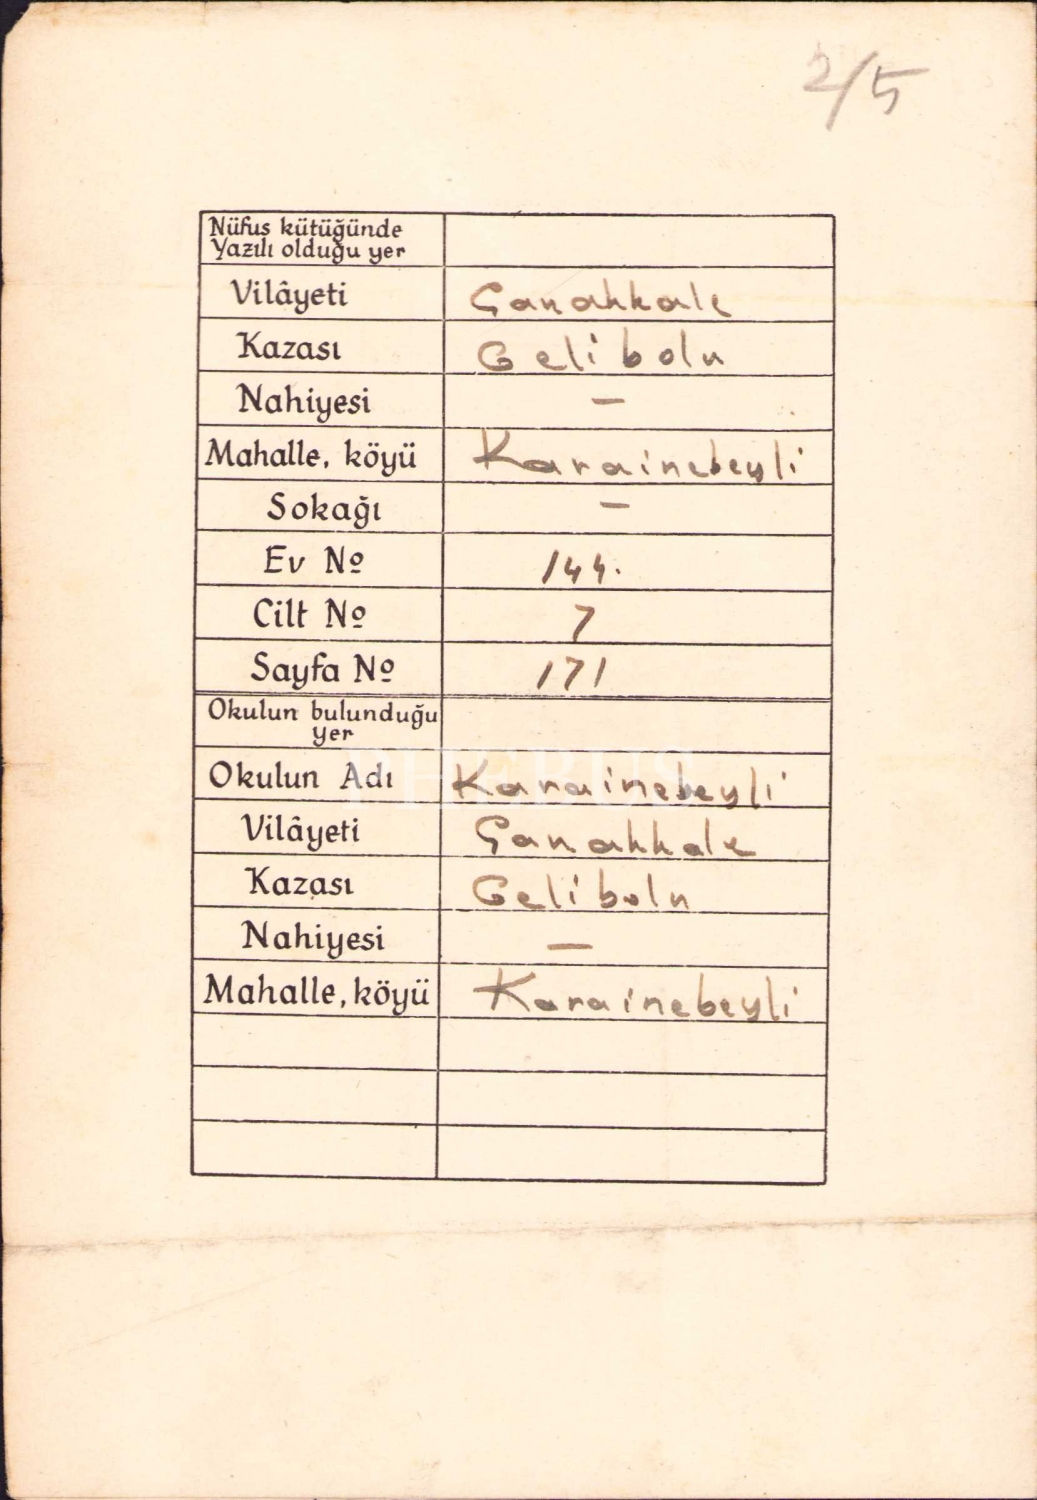 2/5
Nüfus kütüğünde
Yazılı olduğu yer
Vilâyeti Çanakkale
Kazası Gelibolu
Nahiyesi —
Mahalle, köyü Karainebeyli
Sokağı —
Ev № 144.
Cilt № 7
Sayfa № 171
Okulun bulunduğu
yer
Okulun Adı Karainebeyli
Vilâyeti Çanakkale
Kazası Gelibolu
Nahiyesi —
Mahalle, köyü Karainebeyli
PHEBUS